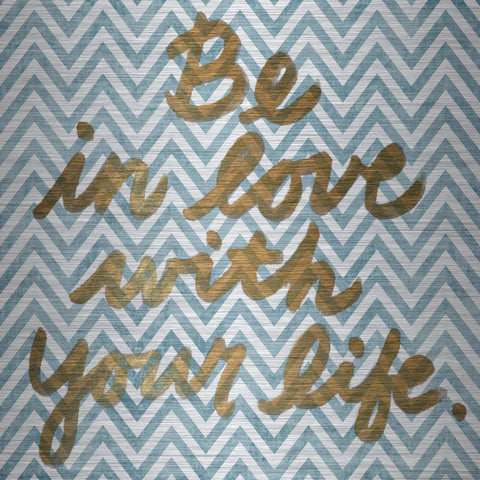 Be
in love
with
your life.